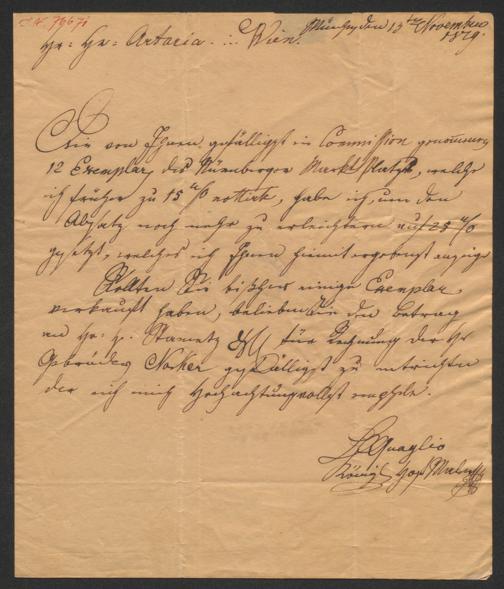 München den 13ten November
1819.
Hr: Hr: Artaria. in Wien.
Die von Ihnen gefälligst in Commission genommenen
12 Exemplar, des Nürnberger Markt Platzes, welche
ich früher zu 15 notirte, habe ich, um den
Absatz noch mehr zu erleichtern auf 25
gesetzt, welches ich Ihnen hiemit ergebenst anzeige
Sollten Sie bisher einige Exemplar
verkauft haben, belieben Sie den Betrag
an Hr: Stametz & für Rechnung der Hr
Gebrüder Nocker gefälligst zu entrichten
der ich mich Hochachtungvollst empfehle.
Quaglio
Königl Hof Maler